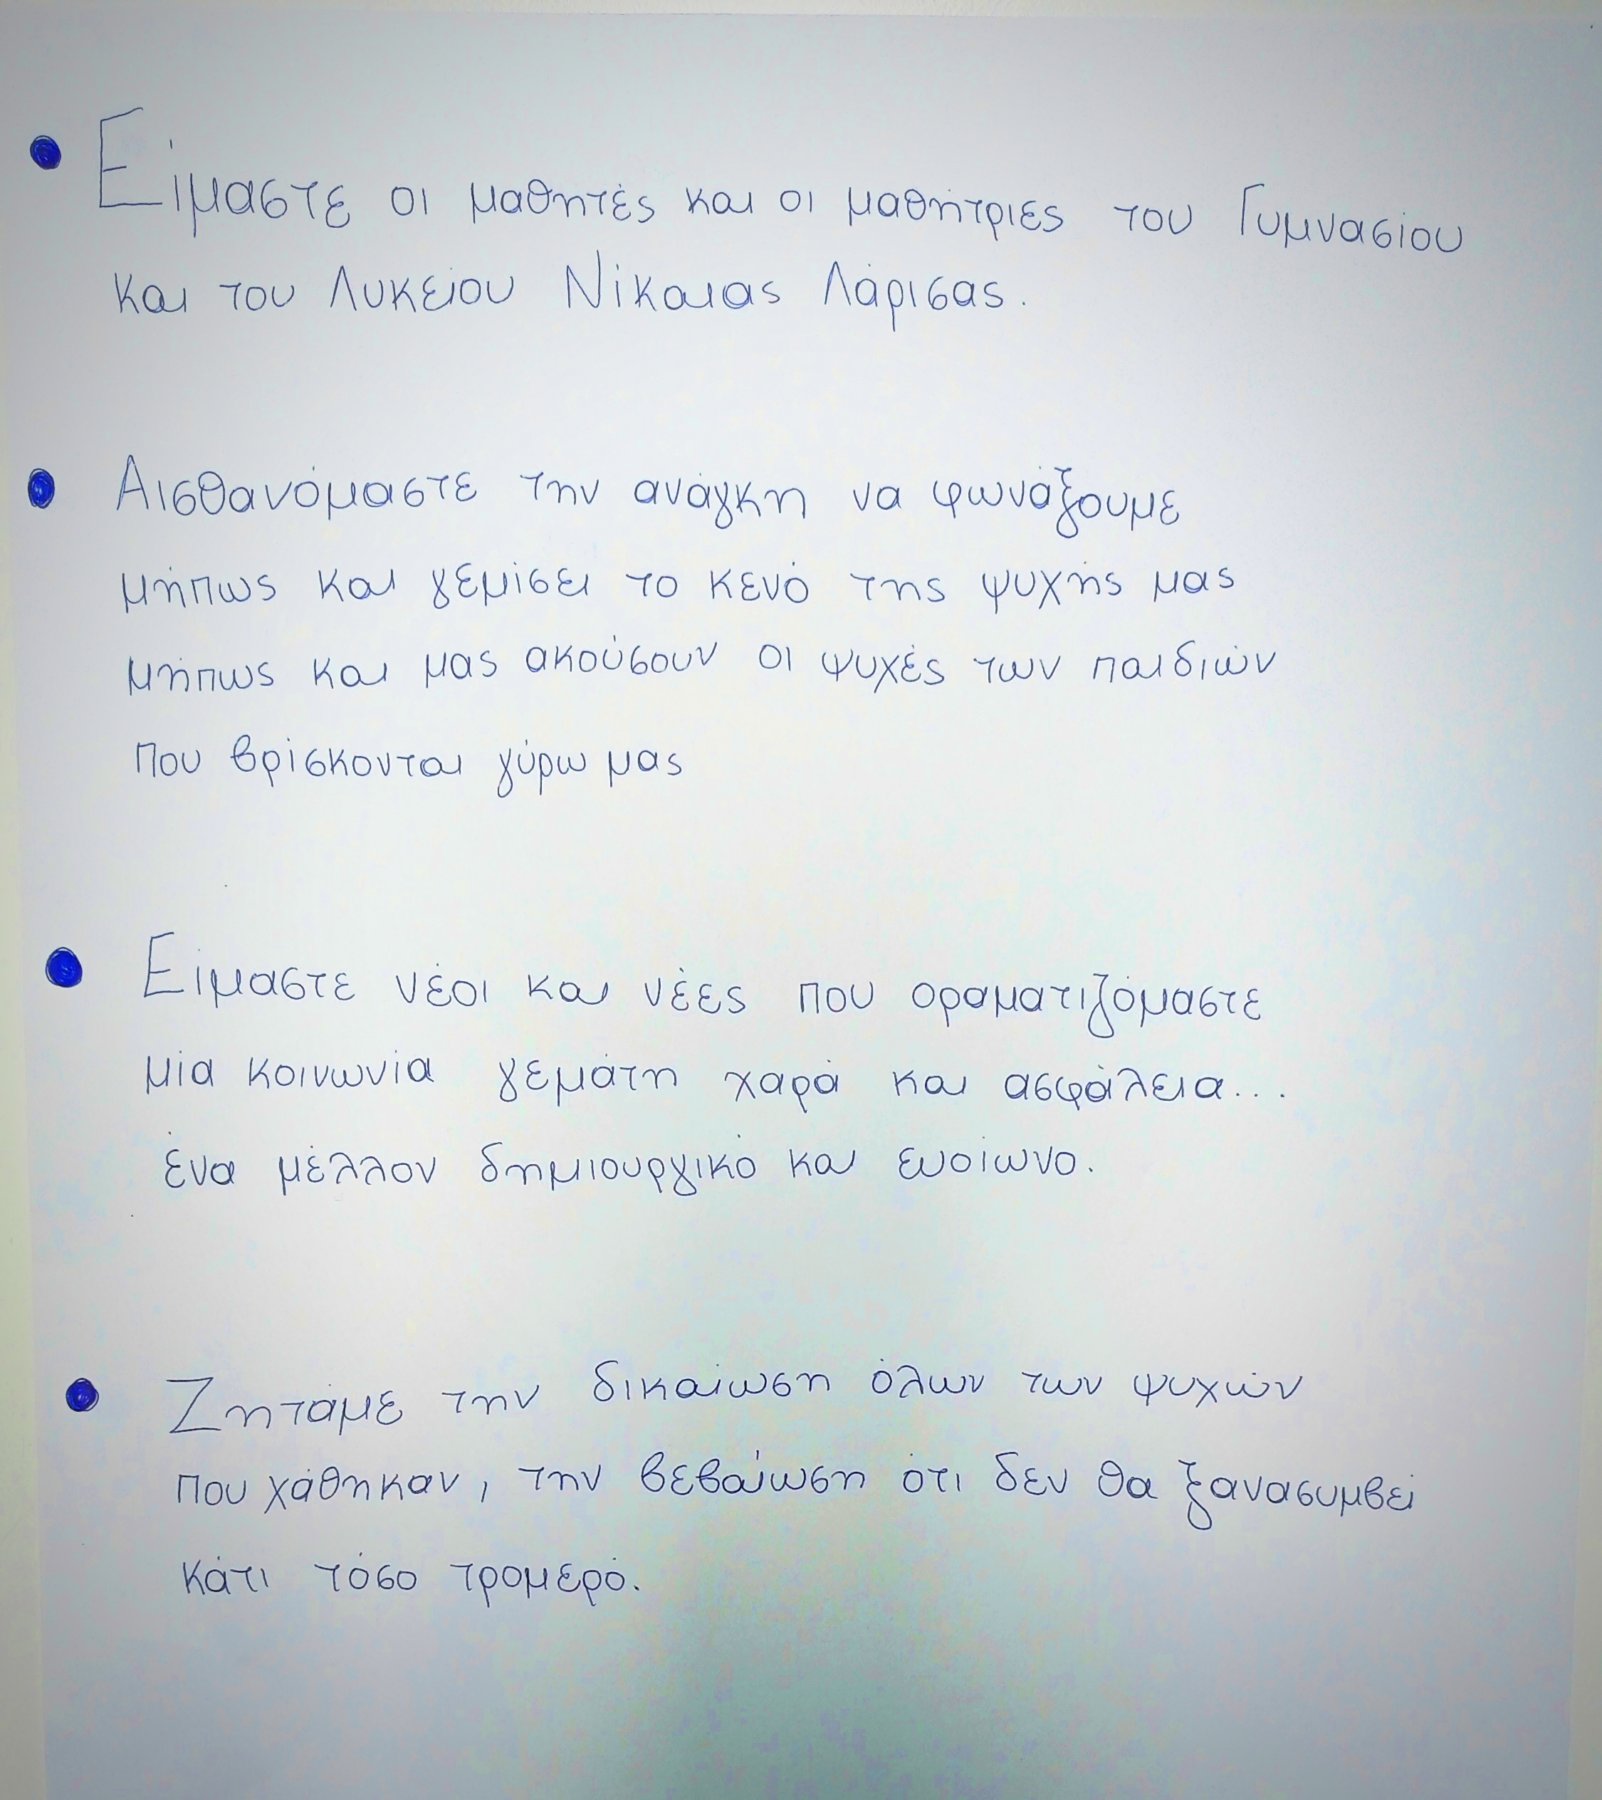 • Είμαστε οι μαθητές και οι μαθήτριες του Γυμνασίου
και του Λυκείου Νίκαιας Λάρισας.
• Αισθανόμαστε την ανάγκη να φωνάξουμε
μήπως και γεμίσει το κενό της ψυχής μας
μήπως και μας ακούσουν οι ψυχές των παιδιών
που βρίσκονται γύρω μας
• Είμαστε νέοι και νέες που οραματιζόμαστε
μία κοινωνία γεμάτη χαρά και ασφάλεια...
ένα μέλλον δημιουργικό και ευοίωνο.
• Ζητάμε την δικαίωση όλων των ψυχών
που χάθηκαν, την βεβαίωση ότι δεν θα ξανασυμβεί
κάτι τόσο τρομερό.